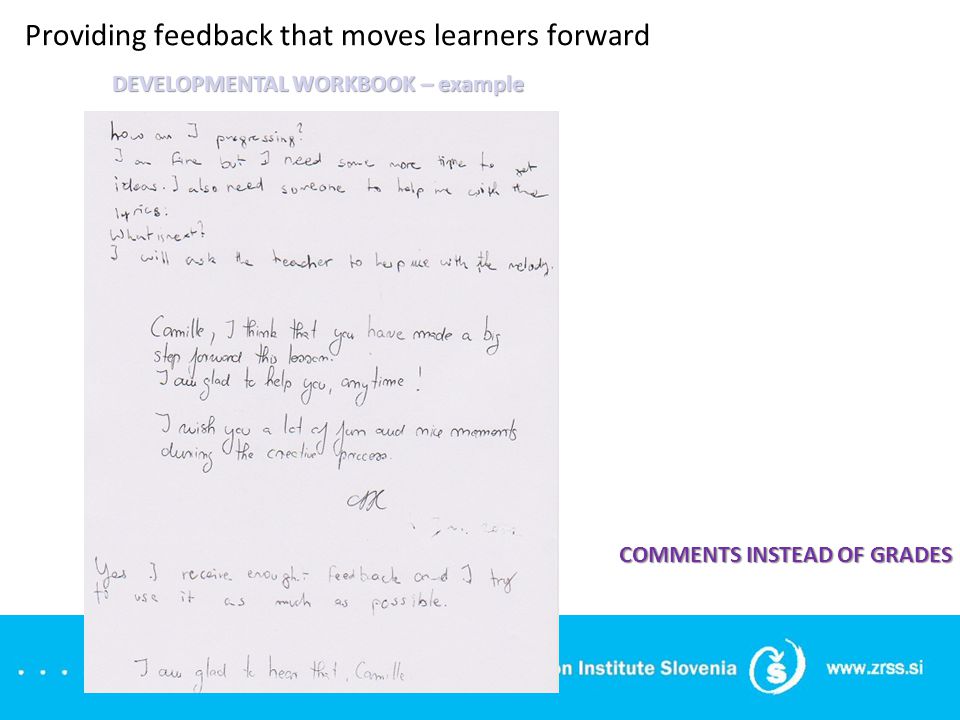 Providing feedback that moves learners forward
DEVELOPMENTAL WORKBOOK – example
how am I progressing?
I am fine but I need some more time to get
ideas. I also need someone to help me with the
lyrics.
What is next?
I will ask the teacher to help me with the melody.
Camille, I think that you have made a big
step forward this lesson.
I am glad to help you, anytime!
I wish you a lot of fun and nice moments
during the creative process.
Yes. I receive enough feedback and I try
to use it as much as possible.
I am glad to hear that, Camille
COMMENTS INSTEAD OF GRADES
on Institute Slovenia
www.zrss.si